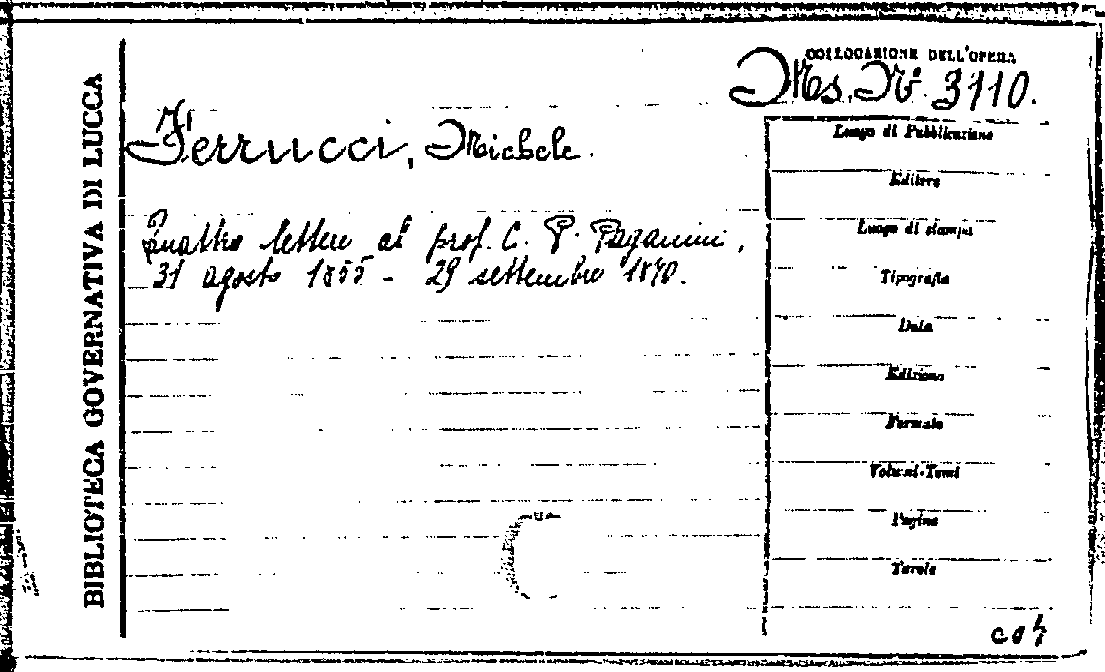 BIBLIOTECA GOVERNATIVA DI LUCCA
COLLOCAZIONE DELL'OPERA
Ms. N° 3110.
Ferrucci, Michele.
Quattro lettere al prof. C. P. Paganini,
31 agosto 1855 - 29 settembre 1870.
Luogo di Pubblicazione
Editore
Luogo di stampa
Tipografia
Data
Edizione
Formato
Volumi-Tomi
Pagine
Tavole